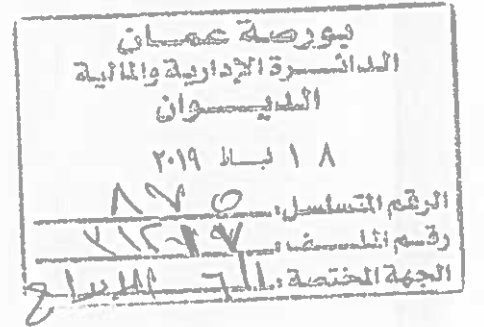 بورصة عمان
الدائرة الإدارية والمالية
الديوان
١٨ شباط ٢٠١٩
الرقم المتسلسل:
رقم الملف:
الجهة المختصة: